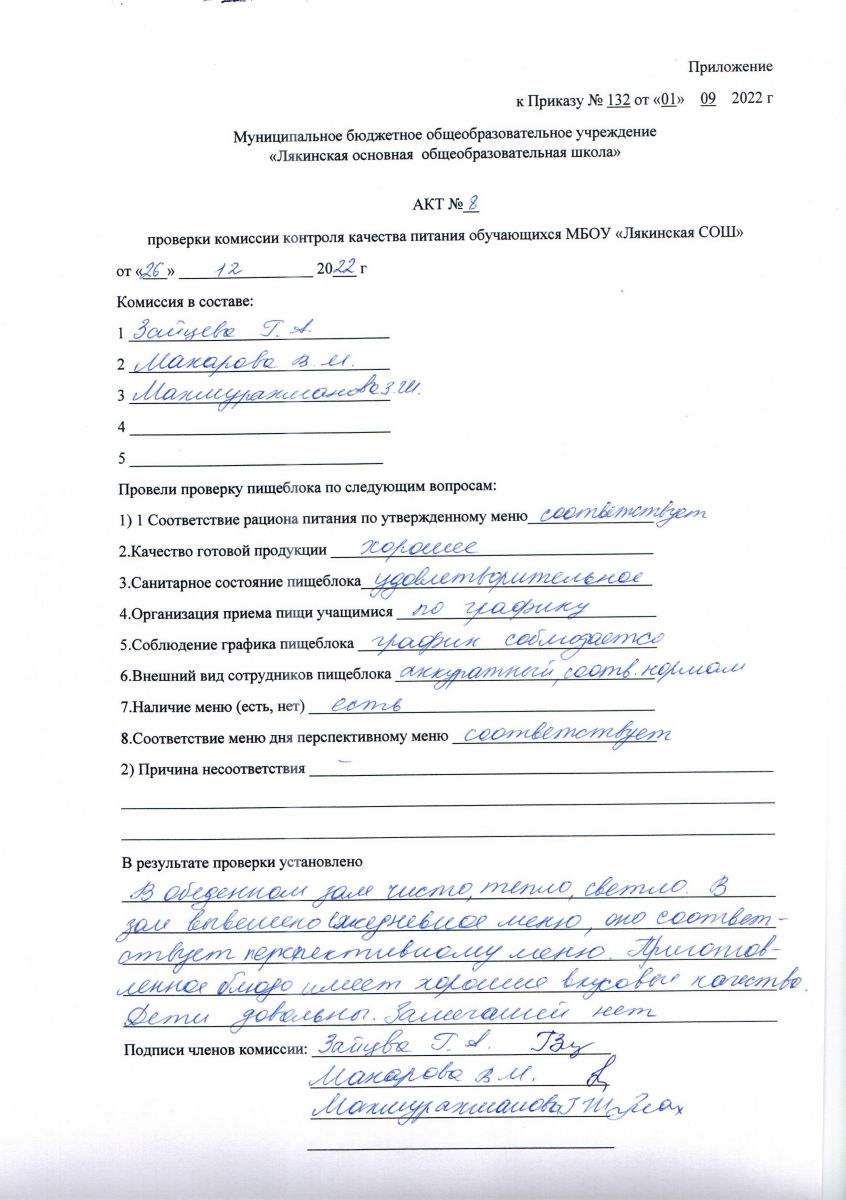 Приложение
к Приказу № 132 от «01» 09 2022 г
Муниципальное бюджетное общеобразовательное учреждение
«Лякинская основная общеобразовательная школа»
АКТ № 8
проверки комиссии контроля качества питания обучающихся МБОУ «Лякинская СОШ»
от «26» 12 2022 г
Комиссия в составе:
1 Зайцева Г. А.
2 Макарова В. М.
3 Махмурахманова З.Ш.
4
5
Провели проверку пищеблока по следующим вопросам:
1) 1 Соответствие рациона питания по утвержденному меню соответствует
2.Качество готовой продукции хорошее
3.Санитарное состояние пищеблока удовлетворительное
4.Организация приема пищи учащимися по графику
5.Соблюдение графика пищеблока график соблюдается
6.Внешний вид сотрудников пищеблока аккуратный, соотв. нормам
7.Наличие меню (есть, нет) есть
8.Соответствие меню дня перспективному меню соответствует
2) Причина несоответствия –
В результате проверки установлено
В обеденном зале чисто, тепло, светло. В
зале вывешено ежедневное меню, оно соответ-
ствует перспективному меню. Приготов-
ленное блюдо имеет хорошие вкусовые качества.
Дети довольны. Замечаний нет
Подписи членов комиссии: Зайцева Г. А.
Макарова В М.
Махмурахманова